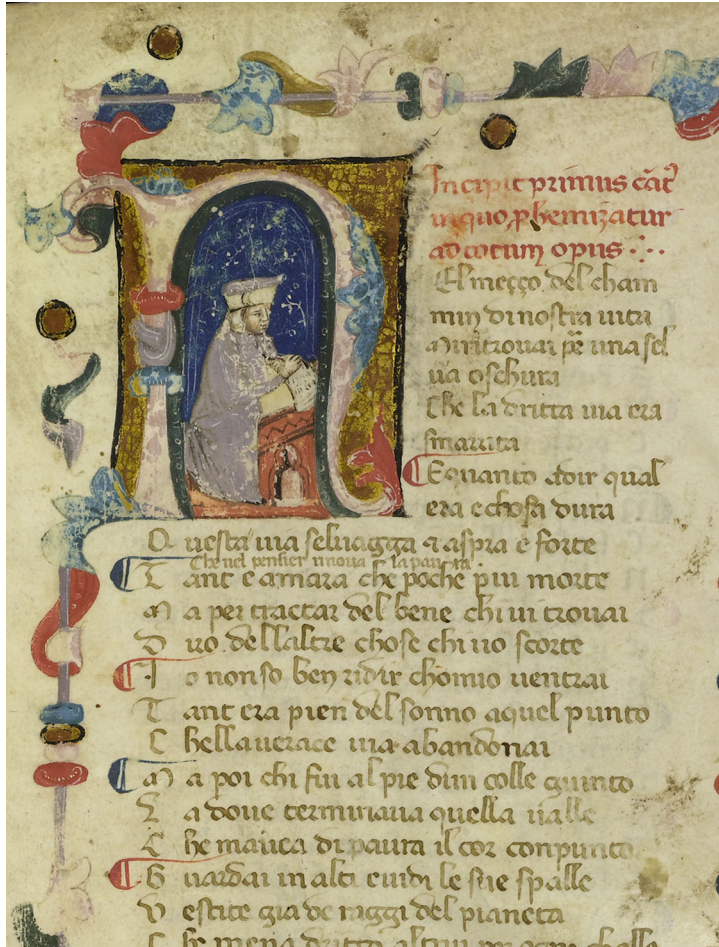 Incipit primus cāt᾽
in quo ꝓhemizatur
ad totum opus
N
El meççο del cham
min di nostra uita
Mi ritrouai ꝑ una sel
ua oschura
Che la dritta uia era
smarrita
E quanto adir qual
era e chosa dura
Questa uia seluagga ⁊ aspra e forte
Che nel pensier rinoua la paura
Tant e amara che poche piu morte
Ma per tractar del bene chi ui trouai
Diro dellaltre chose chi uo scorte
Io non so ben ridir chomio uentrai
Tant era pien del sonno a quel punto
Che lla uerace uia abandonai
Ma poi chi fui al pie dun colle giunto
La doue terminaua quella ualle
Che mauea di paura il cor conpunto
Guardai in alti e uidi le sue spalle
Vestite gia de raggi del pianeta
Che mena dritto altrui per ogni challe